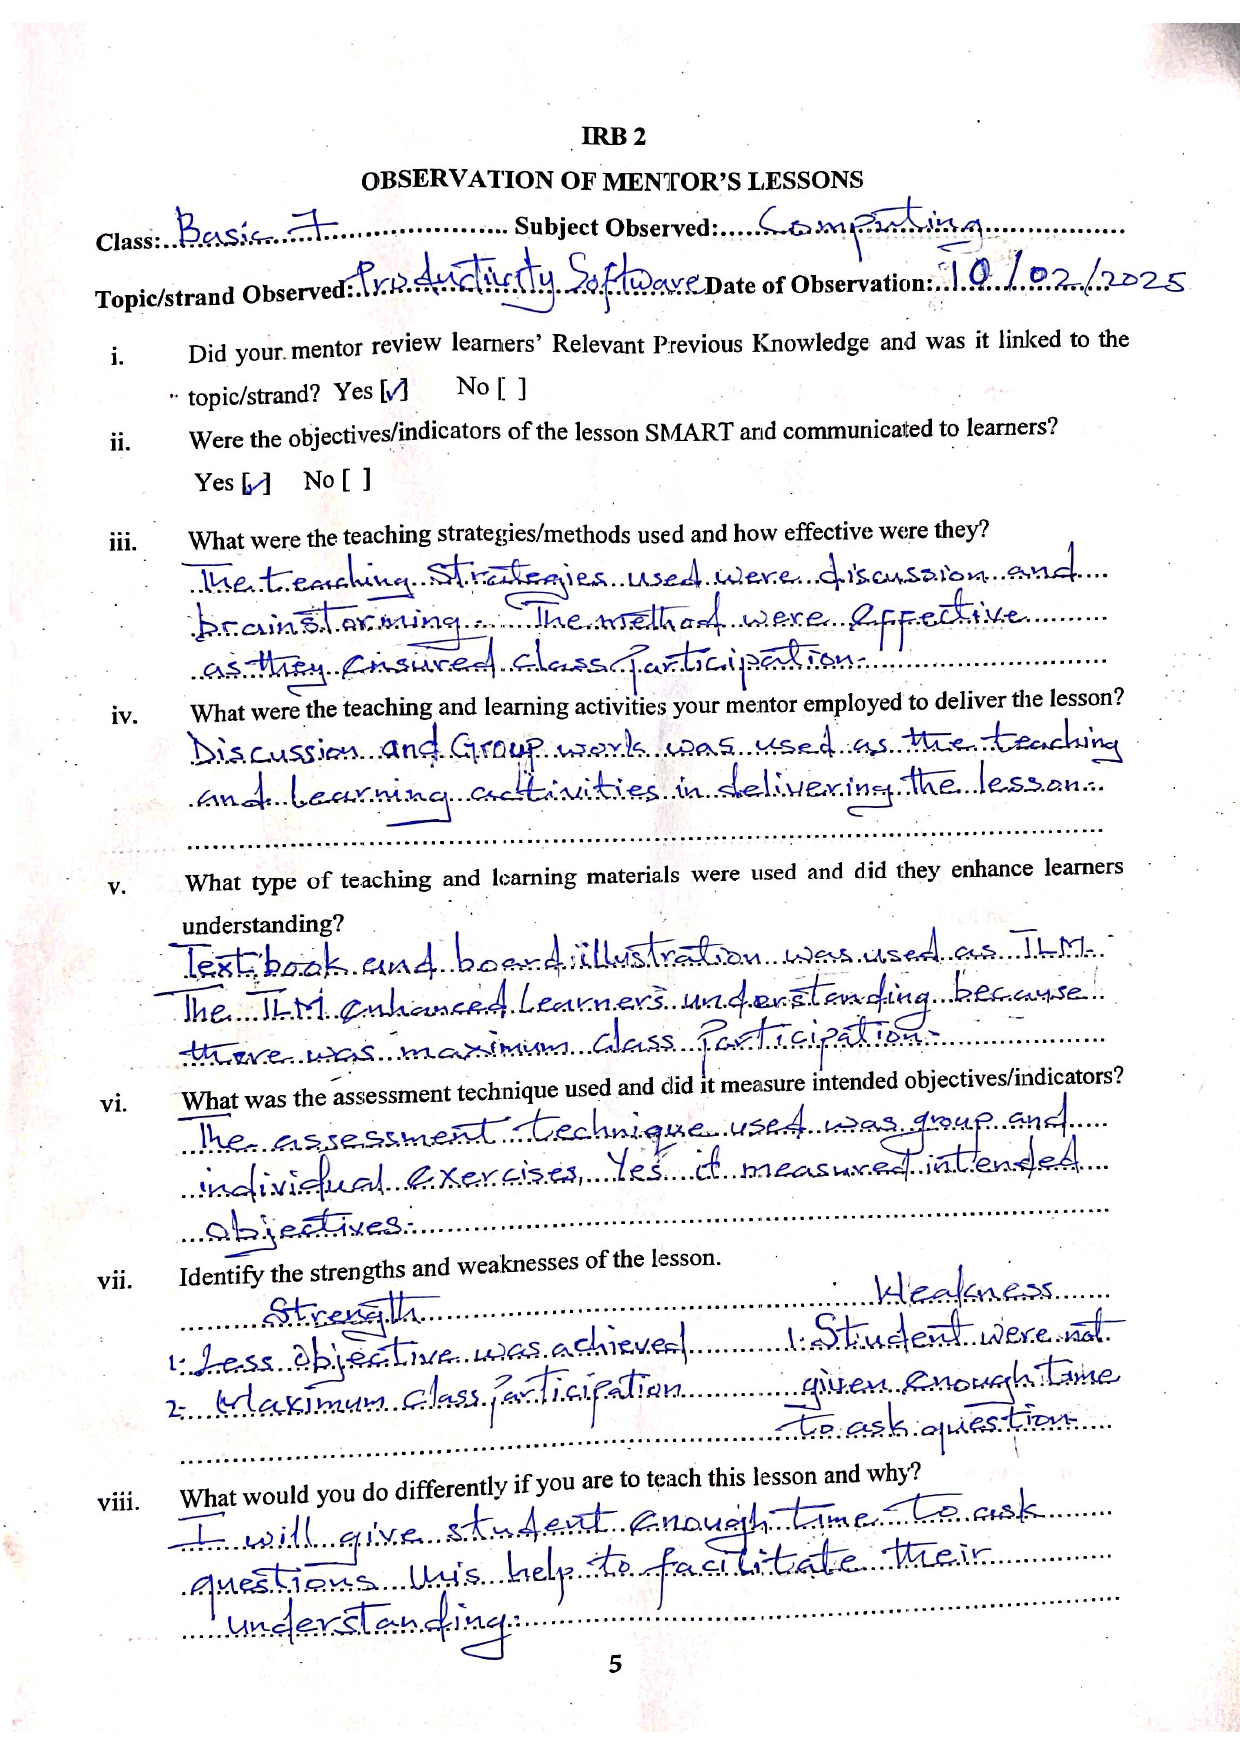 IRB 2
OBSERVATION OF MENTOR'S LESSONS
Class: Basic 7 Subject Observed: Computing
Topic/strand Observed: Productivity Software Date of Observation: 10/02/2025
i. Did your mentor review learners' Relevant Previous Knowledge and was it linked to the
topic/strand? Yes [✓] No [ ]
ii. Were the objectives/indicators of the lesson SMART and communicated to learners?
Yes [✓] No [ ]
iii. What were the teaching strategies/methods used and how effective were they?
The teaching strategies used were discussion and
brainstorming. The method were effective
as they ensured class participation.
iv. What were the teaching and learning activities your mentor employed to deliver the lesson?
Discussion and Group work was used as the teaching
and learning activities in delivering the lesson.
v. What type of teaching and learning materials were used and did they enhance learners
understanding?
Textbook and board illustration was used as TLM.
The TLM enhanced Learners understanding because
there was maximum class participation.
vi. What was the assessment technique used and did it measure intended objectives/indicators?
The assessment technique used was group and
individual exercises, Yes it measured intended
objectives.
vii. Identify the strengths and weaknesses of the lesson.
Strength Weakness
1. Less objective was achieved 1. Student were not
2. Maximum class participation given enough time
to ask question
viii. What would you do differently if you are to teach this lesson and why?
I will give student enough time to ask
questions this help to facilitate their
understanding.
5